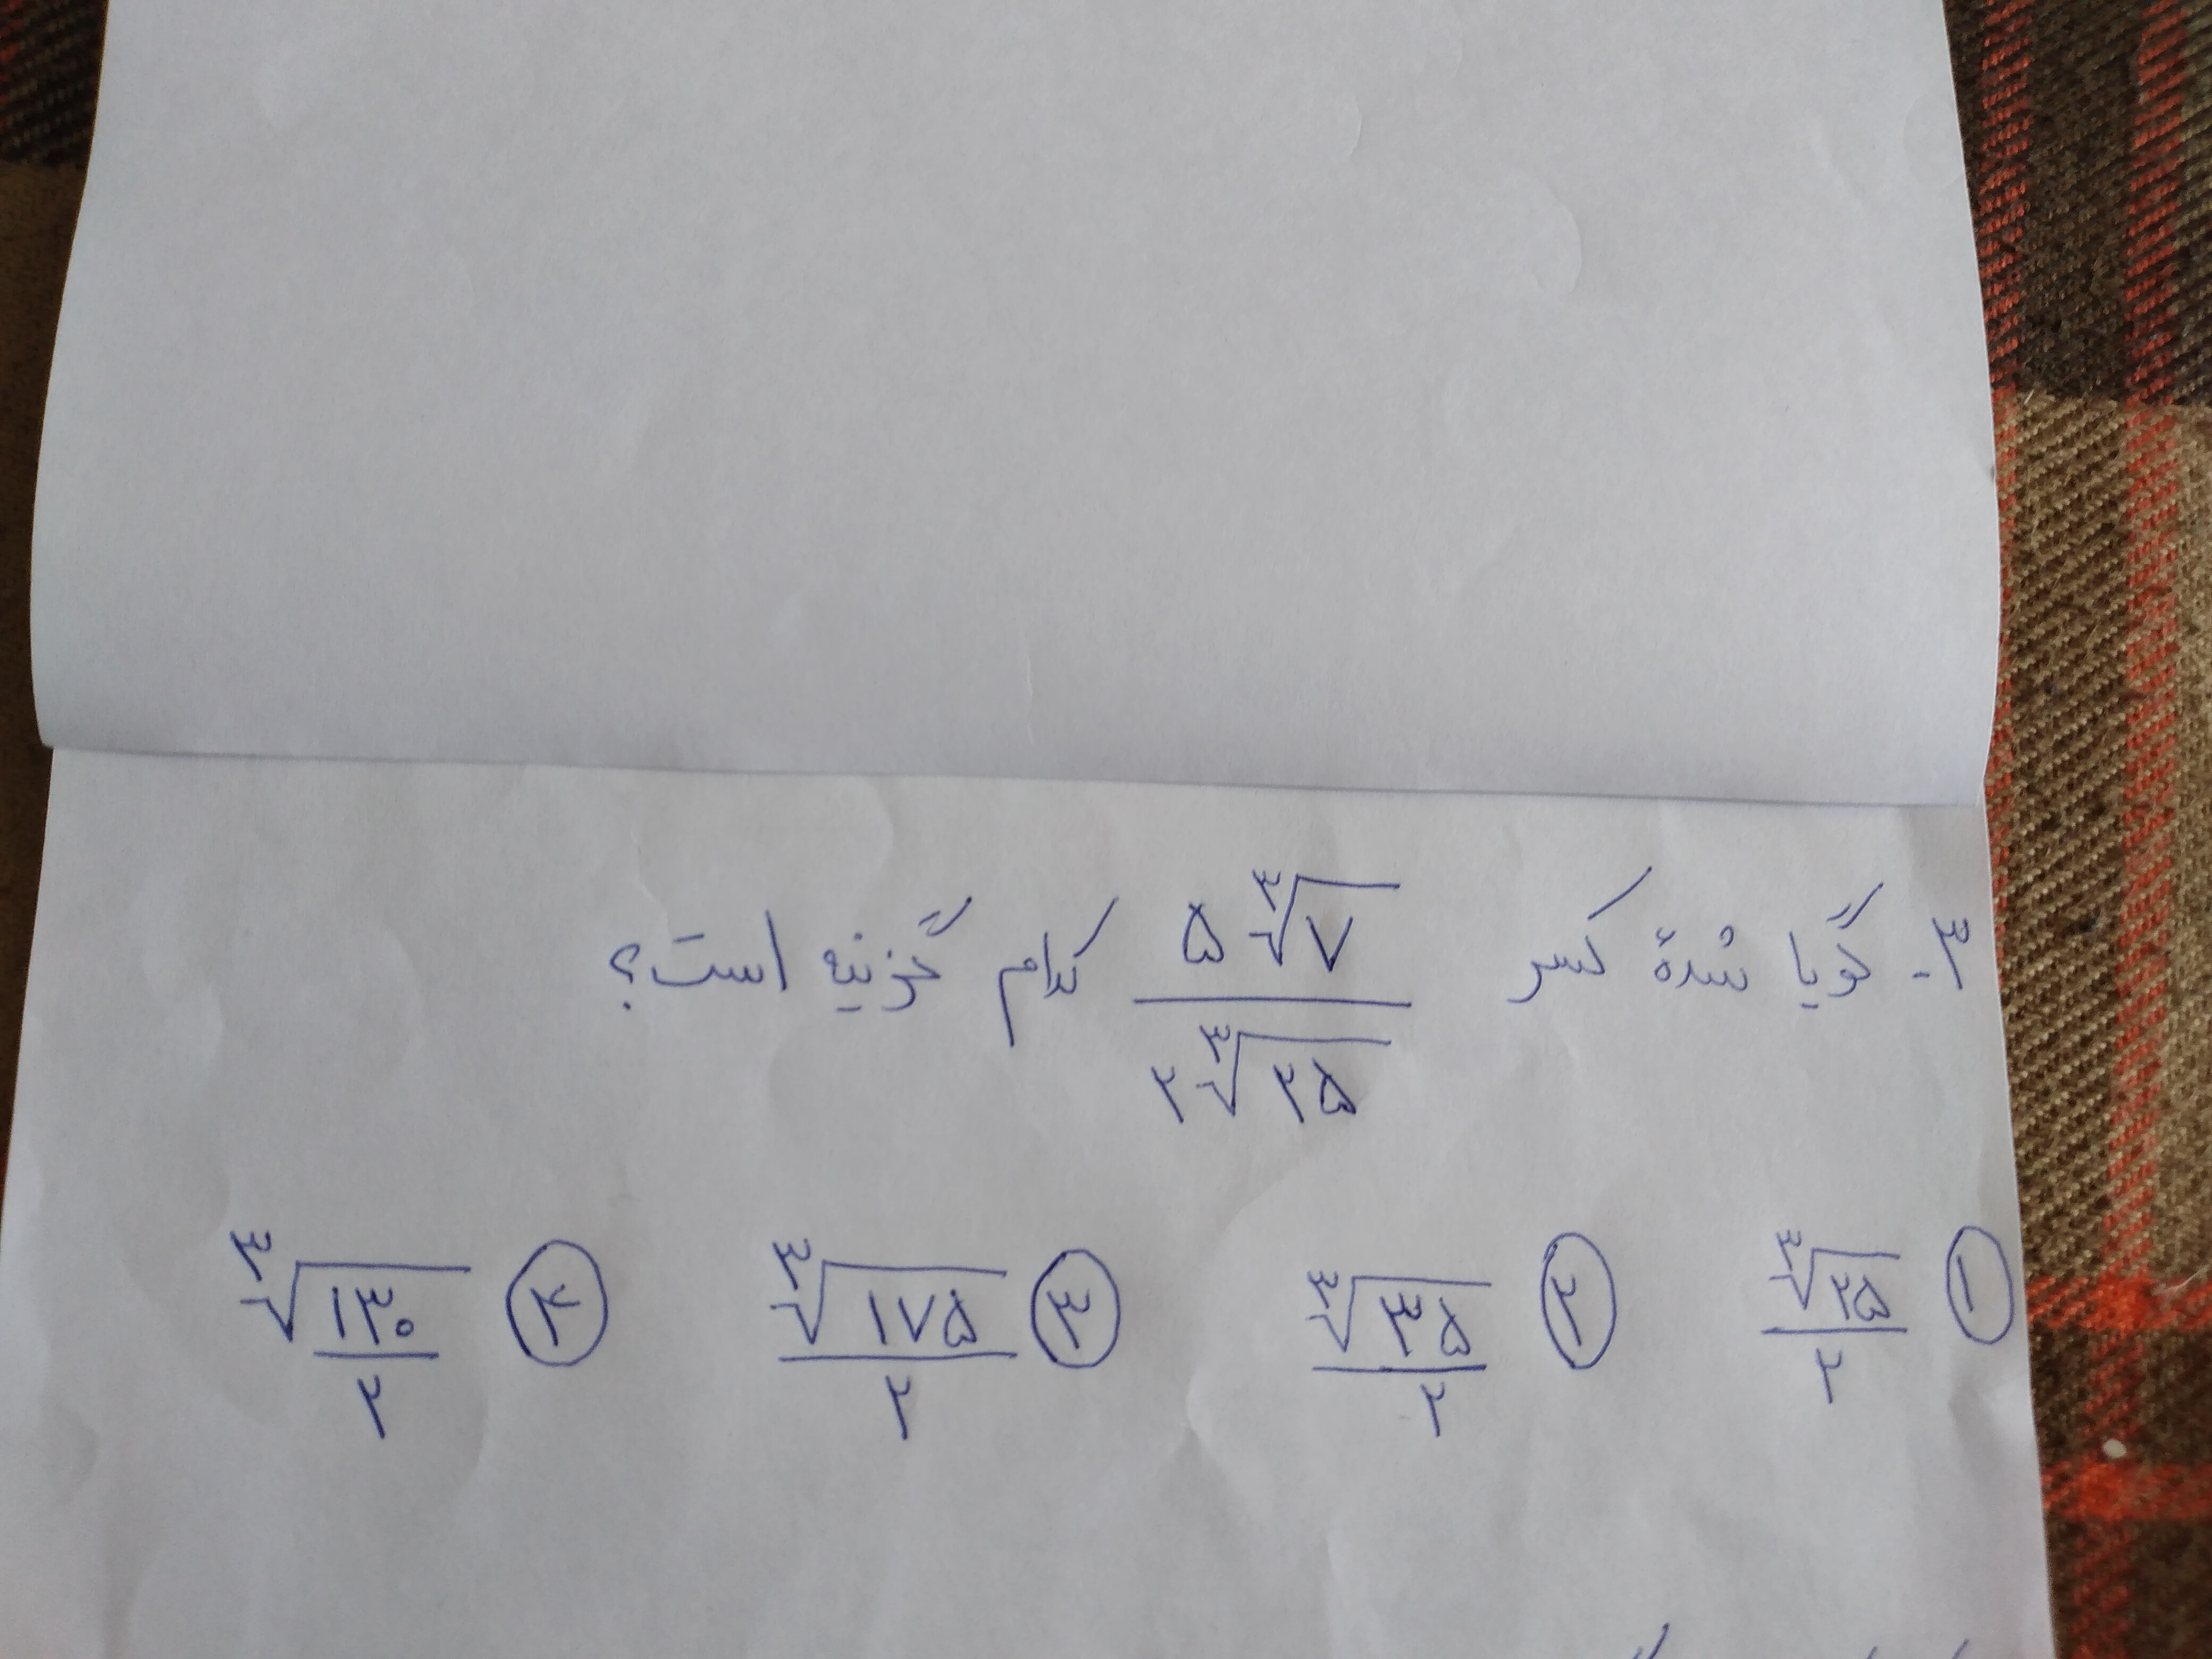 ۳- گویا شدهٔ کسر ۵∛۷ / ۲∛۲۵ کدام گزینه است؟
① ∛۲۵ / ۲ ② ∛۳۵ / ۲ ③ ∛۱۷۵ / ۲ ④ ∛۱۳۰ / ۲